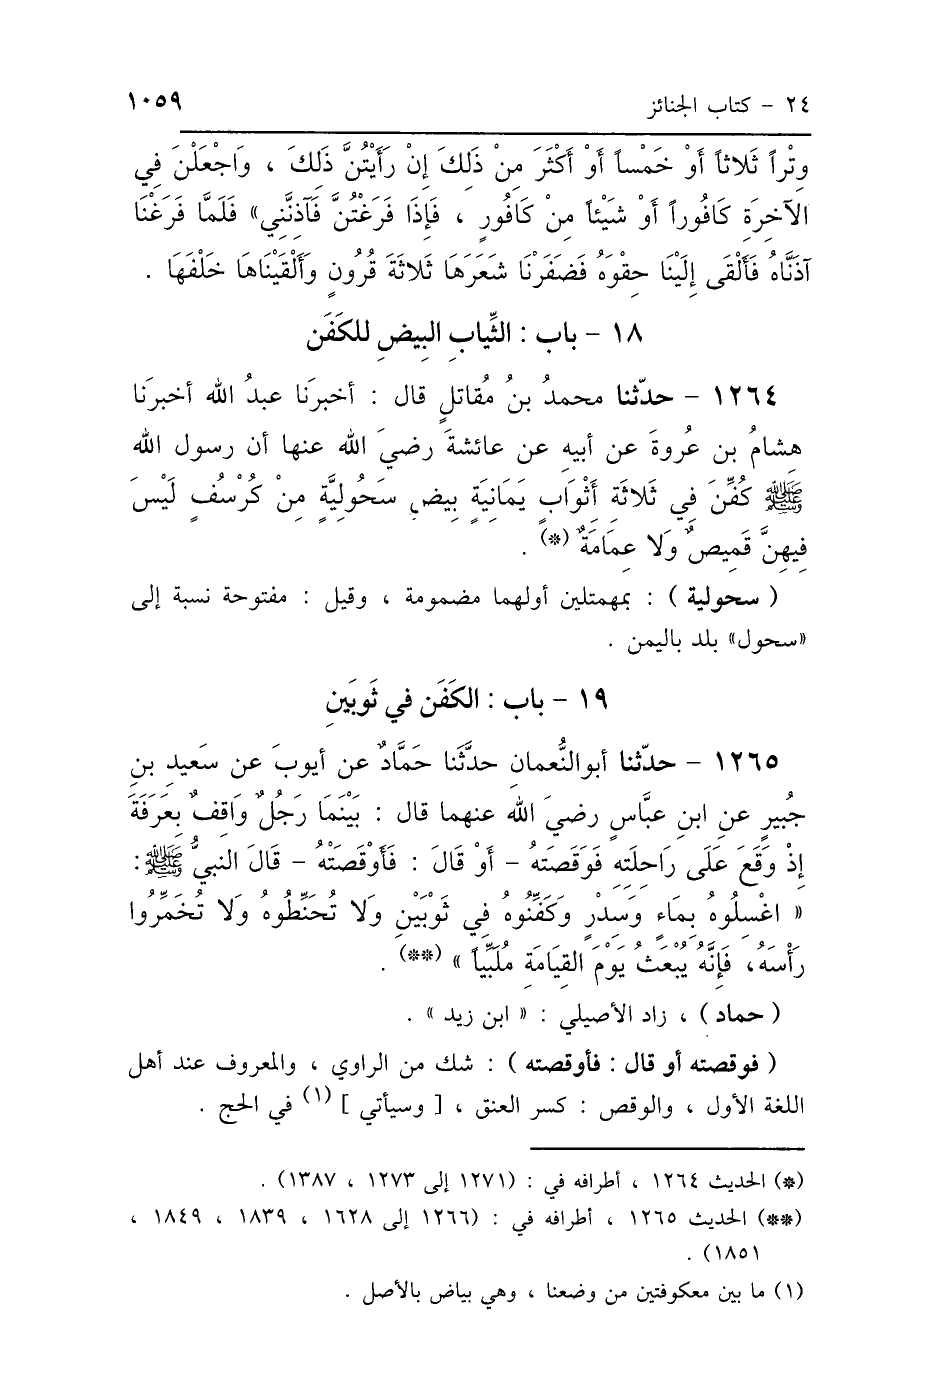 ٢٤ - كتاب الجنائز ١٠٥٩
وِتْراً ثَلاثاً أَوْ خَمْساً أَوْ أَكْثَرَ مِنْ ذَلِكَ إِنْ رَأَيْتُنَّ ذَلِكَ ، وَاجْعَلْنَ فِي
الآخِرَةِ كَافُوراً أَوْ شَيْئاً مِنْ كَافُورٍ ، فَإِذَا فَرَغْتُنَّ فَآذِنَّنِي» فَلَمَّا فَرَغْنَا
آذَنَّاهُ فَأَلْقَى إِلَيْنَا حِقْوَهُ فَضَفَرْنَا شَعَرَهَا ثَلاثَةَ قُرُونٍ وَأَلْقَيْنَاهَا خَلْفَهَا .
١٨ - باب : الثِّيابِ البِيضِ للكَفَن
١٢٦٤ - حدّثنا محمدُ بنُ مُقاتلٍ قال : أخبرَنا عبدُ الله أخبرَنا
هِشامُ بن عُروةَ عن أبيهِ عن عائشةَ رضيَ الله عنها أن رسول الله
ﷺ كُفِّنَ فِي ثَلاثَةِ أَثْوَابٍ يَمَانِيَةٍ بِيضٍ سَحُولِيَّةٍ مِنْ كُرْسُفٍ لَيْسَ
فِيهِنَّ قَمِيصٌ وَلا عِمَامَةٌ (*) .
( سحولية ) : بمهمتلين أولهما مضمومة ، وقيل : مفتوحة نسبة إلى
«سحول» بلد باليمن .
١٩ - باب : الكَفَن في ثَوبَينِ
١٢٦٥ - حدّثنا أبوالنُّعمان حدَّثَنا حَمَّادٌ عن أيوبَ عن سَعيدِ بنِ
جُبيرٍ عن ابنِ عبَّاسٍ رضيَ الله عنهما قال : بَيْنَمَا رَجُلٌ وَاقِفٌ بِعَرَفَةَ
إِذْ وَقَعَ عَلَى رَاحِلَتِهِ فَوَقَصَتهُ - أَوْ قَالَ : فَأَوْقَصَتْهُ - قَالَ النبيُّ ﷺ :
« اغْسِلُوهُ بِمَاءٍ وَسِدْرٍ وَكَفِّنُوهُ فِي ثَوْبَيْنِ وَلا تُحَنِّطُوهُ وَلا تُخَمِّرُوا
رَأْسَهُ، فَإِنَّهُ يُبْعَثُ يَوْمَ القِيَامَةِ مُلَبِّياً » (**) .
( حماد ) ، زاد الأصيلي : « ابن زيد » .
( فوقصته أو قال : فأوقصته ) : شك من الراوي ، والمعروف عند أهل
اللغة الأول ، والوقص : كسر العنق ، [ وسيأتي ] (١) في الحج .
(*) الحديث ١٢٦٤ ، أطرافه في : (١٢٧١ إلى ١٢٧٣ ، ١٣٨٧) .
(**) الحديث ١٢٦٥ ، أطرافه في : (١٢٦٦ إلى ١٦٢٨ ، ١٨٣٩ ، ١٨٤٩ ،
١٨٥١) .
(١) ما بين معكوفتين من وضعنا ، وهي بياض بالأصل .